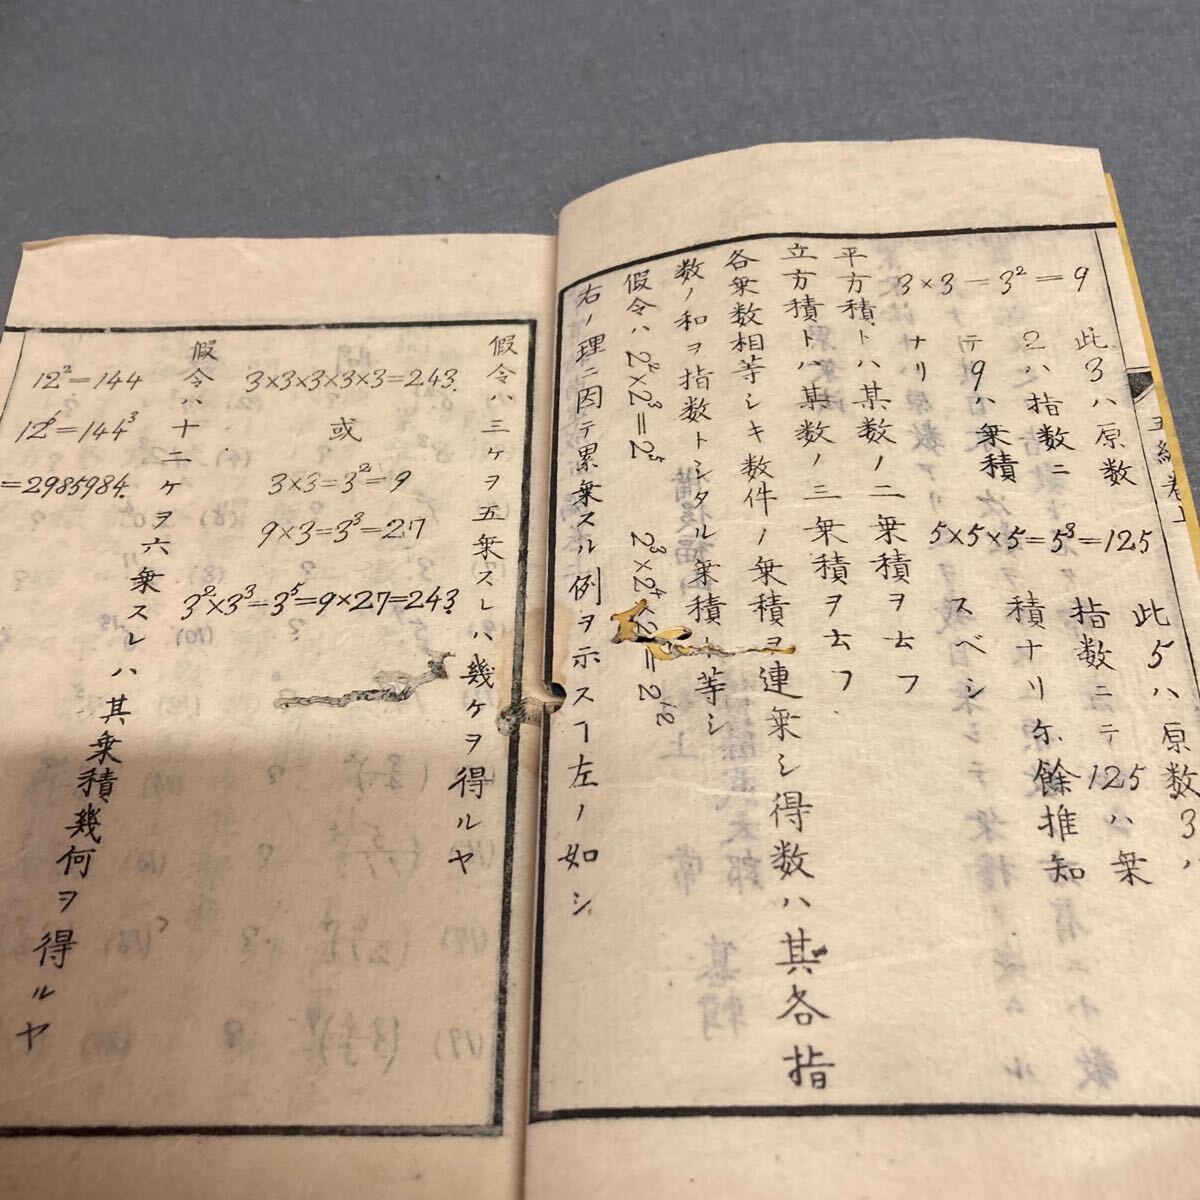 3×3=3²=9
此3ハ原数
2ハ指数ニ
テ9ハ乗積
ナリ
5×5×5=5³=125
此5ハ原数3ハ
指数ニテ125ハ乗
積ナリ尓餘推知
スベシ
平方積トハ某数ノ二乗積ヲ云フ
立方積トハ某数ノ三乗積ヲ云フ
各乗数相等シキ数件ノ乗積ヲ連乗シ得数ハ其各指
数ノ和ヲ指数トシタル乗積ト等シ
假令ハ 2²×2³=2⁵
2³×2⁴×2⁵=2¹²
右ノ理ニ因テ累乗スル例ヲ示スヿ左ノ如シ
假令ハ三ケヲ五乗スレハ幾ケヲ得ルヤ
3×3×3×3×3=243.
或
3×3=3²=9
9×3=3³=27
3²×3³=3⁵=9×27=243
假令ハ十二ケヲ六乗スレハ其乗積幾何ヲ得ルヤ
12²=144
12⁶=144³
=2985984.